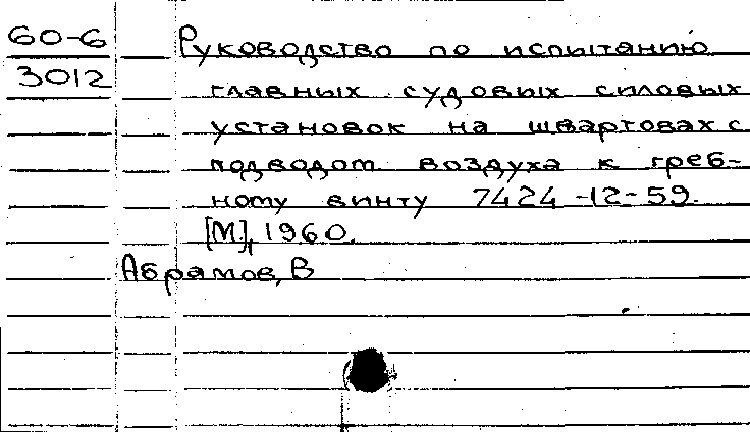 60-6 Руководство по испытанию
3012 главных судовых силовых
установок на швартовах с
подводом воздуха к греб-
ному винту 7424-12-59.
[М.], 1960.
Абрамов, В